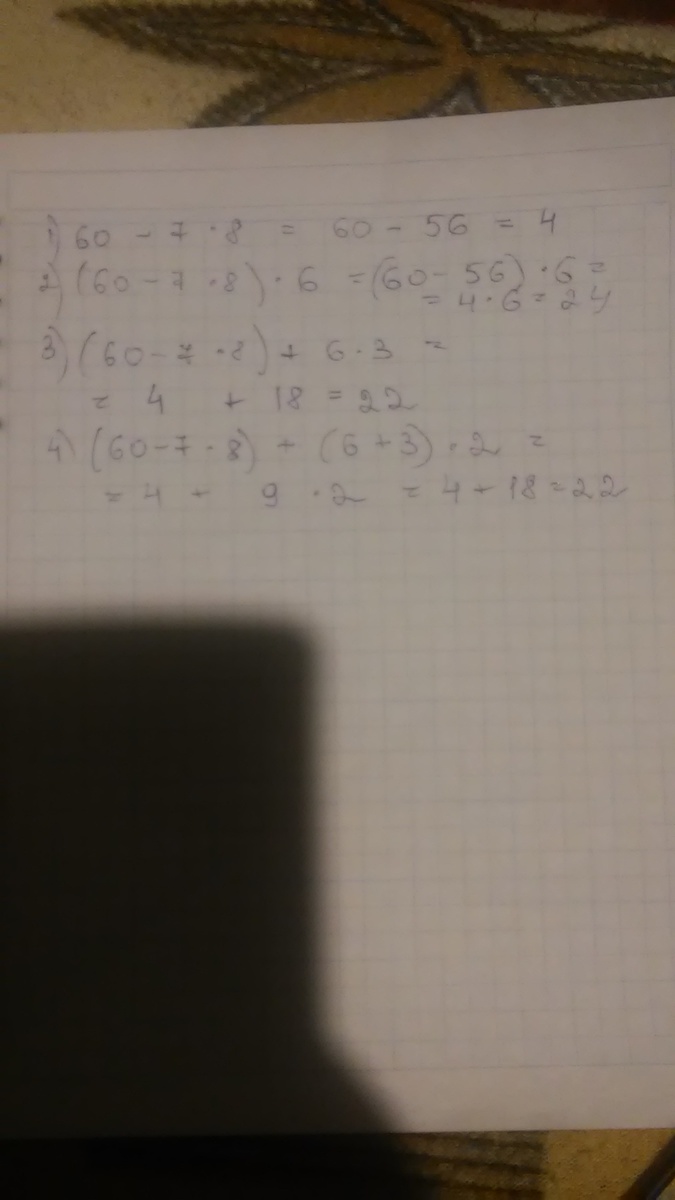 1) 60 - 7 · 8 = 60 - 56 = 4
2) (60 - 7 · 8) · 6 = (60 - 56) · 6 =
= 4 · 6 = 24
3) (60 - 7 · 8) + 6 · 3 =
= 4 + 18 = 22
4) (60 - 7 · 8) + (6 + 3) · 2 =
= 4 + 9 · 2 = 4 + 18 = 22